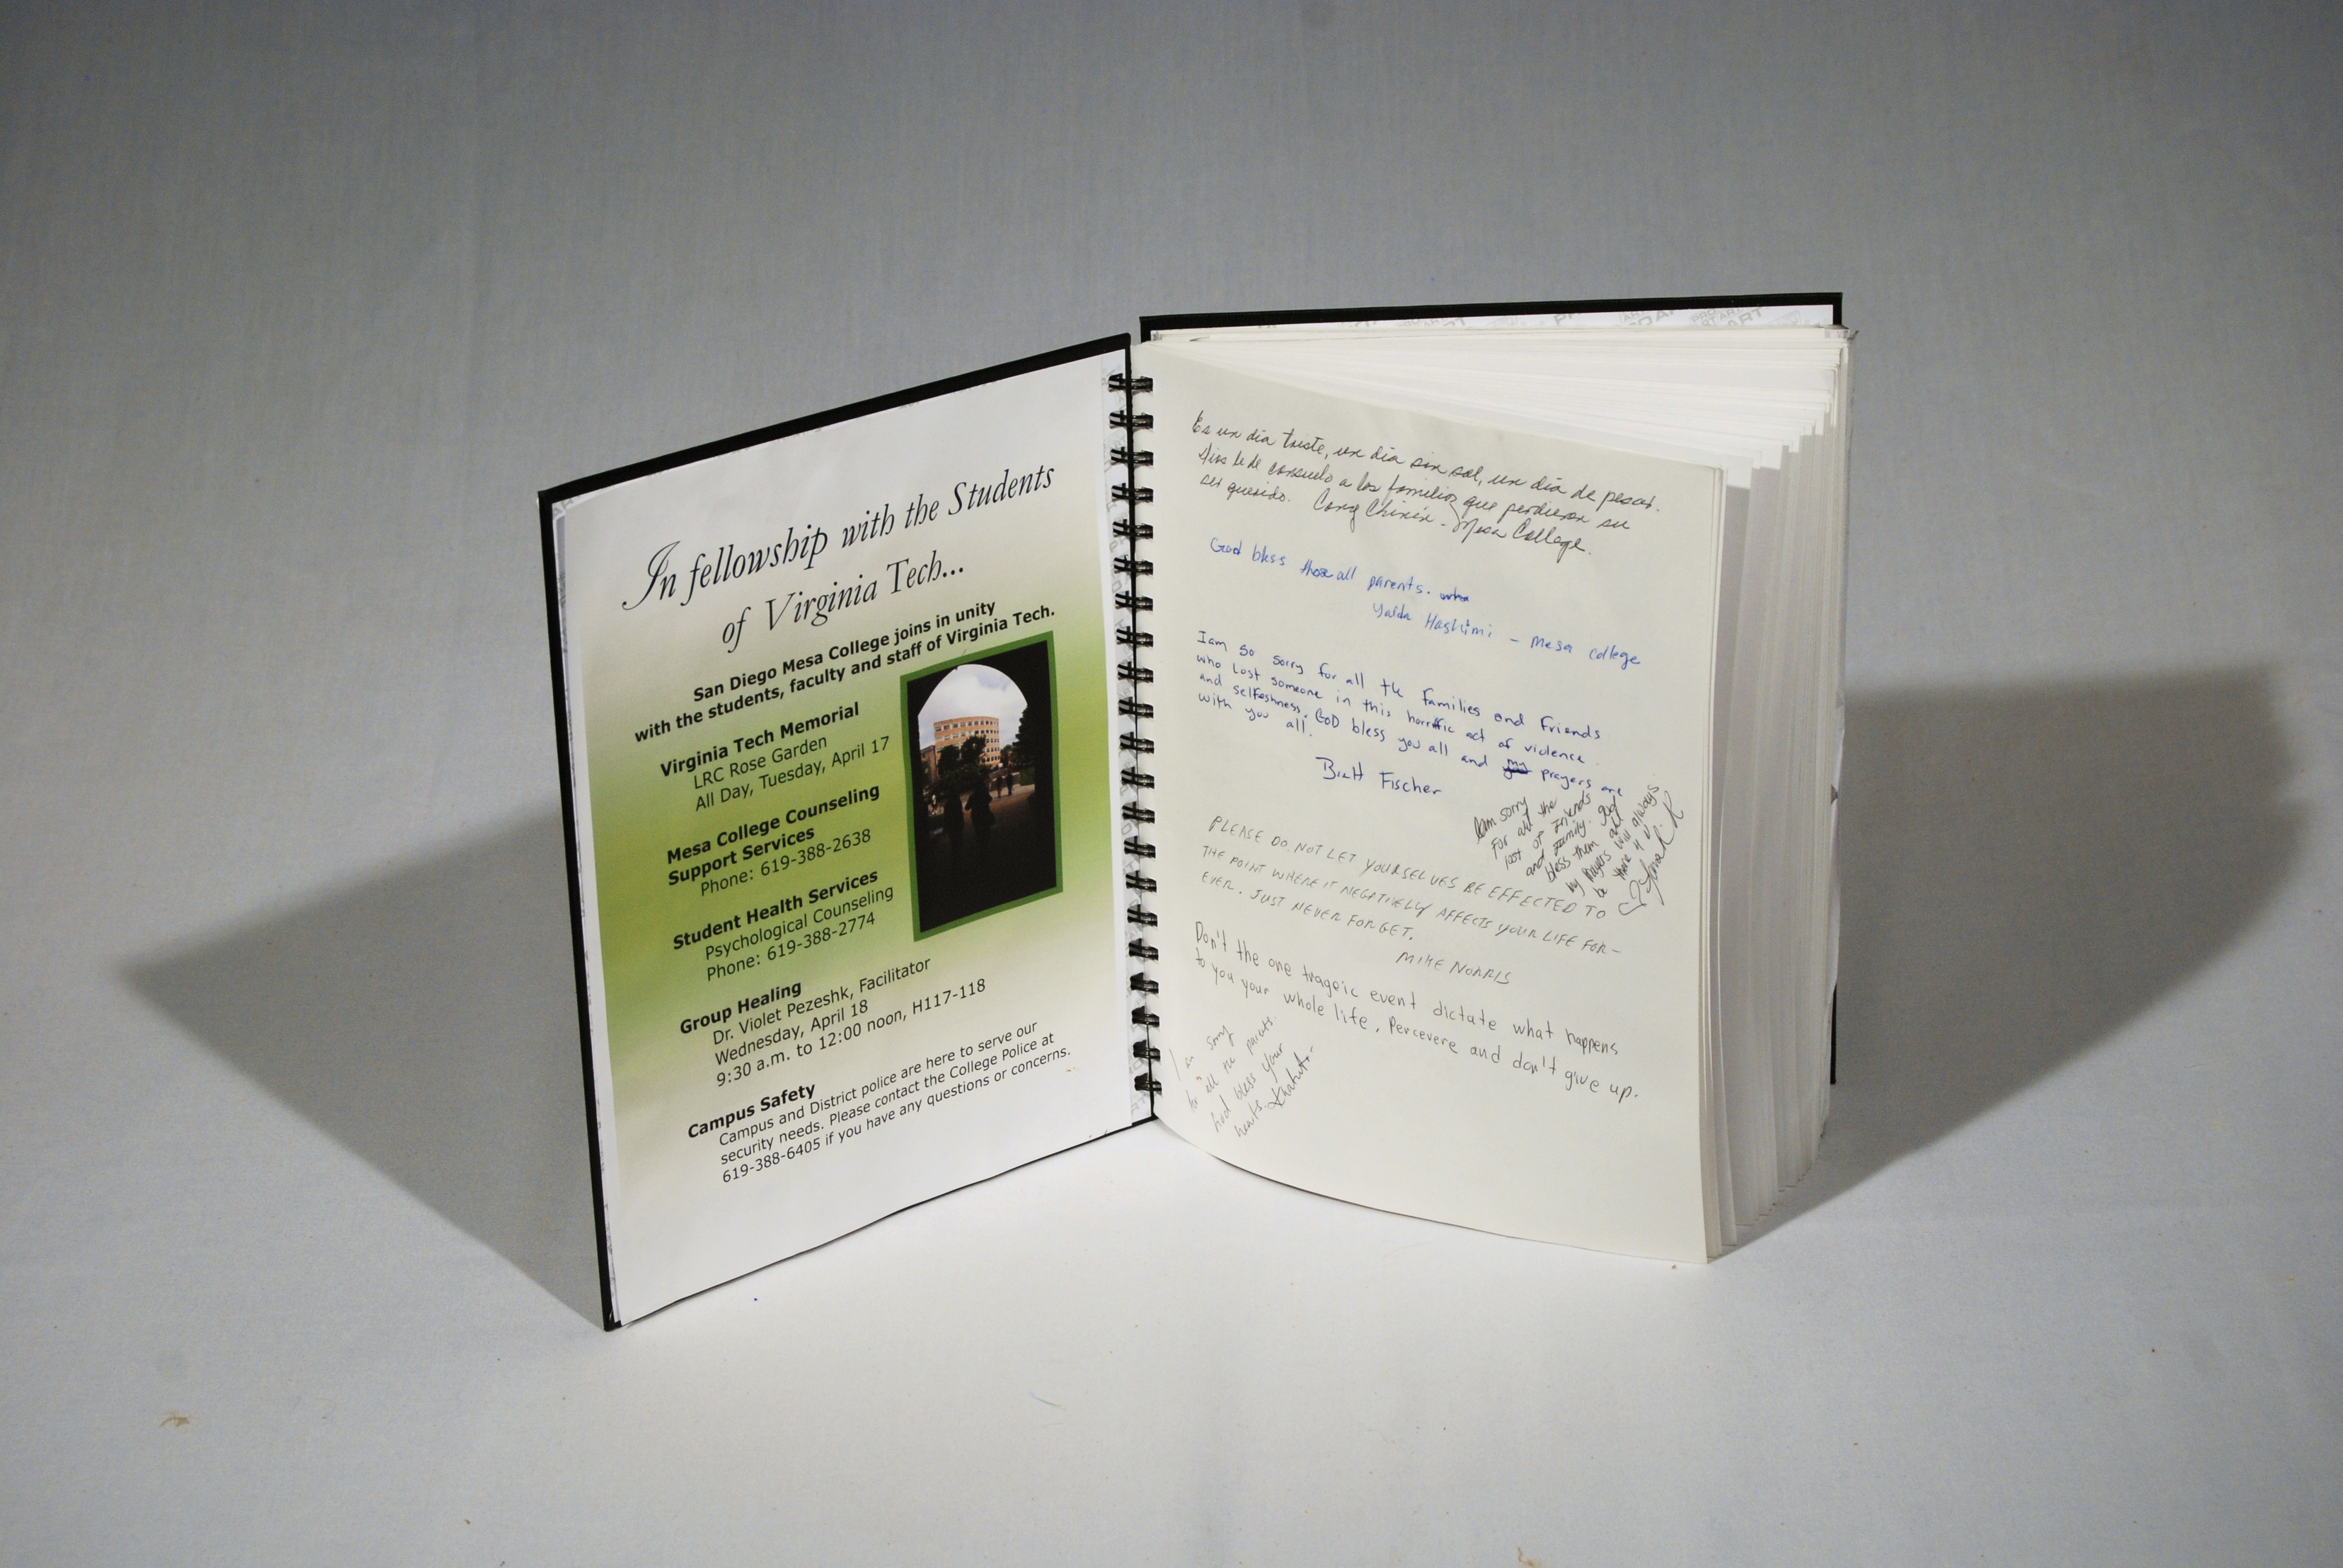 In fellowship with the Students
of Virginia Tech...
San Diego Mesa College joins in unity
with the students, faculty and staff of Virginia Tech.
Virginia Tech Memorial
LRC Rose Garden
All Day, Tuesday, April 17
Mesa College Counseling
Support Services
Phone: 619-388-2638
Student Health Services
Psychological Counseling
Phone: 619-388-2774
Group Healing
Dr. Violet Pezeshk, Facilitator
Wednesday, April 18
9:30 a.m. to 12:00 noon, H117-118
Campus Safety
Campus and District police are here to serve our
security needs. Please contact the College Police at
619-388-6405 if you have any questions or concerns.
Es un día triste, un día sin sol, un día de pesar.
Dios le dé consuelo a las familias que perdieron su
ser querido. - Mesa College.
God bless all parents.
Yalda Hashimi - Mesa college
I am so sorry for all the families and friends
who lost someone in this horrific act of violence
and selfeshness. GOD bless you all and my prayers are
with you all.
Brett Fischer
I am sorry
For all the
lost of friends
and family. God
bless them and
my prayers will always
be there 4 U
PLEASE DO NOT LET YOURSELVES BE EFFECTED TO
THE POINT WHERE IT NEGATIVELY AFFECTS YOUR LIFE FOR-
EVER. JUST NEVER FORGET.
MIKE NORRIS
Don't the one trageic event dictate what happens
to you your whole life. Percevere and don't give up.
I am sorry
to all the parents.
God bless your
hearts.
PRO ART